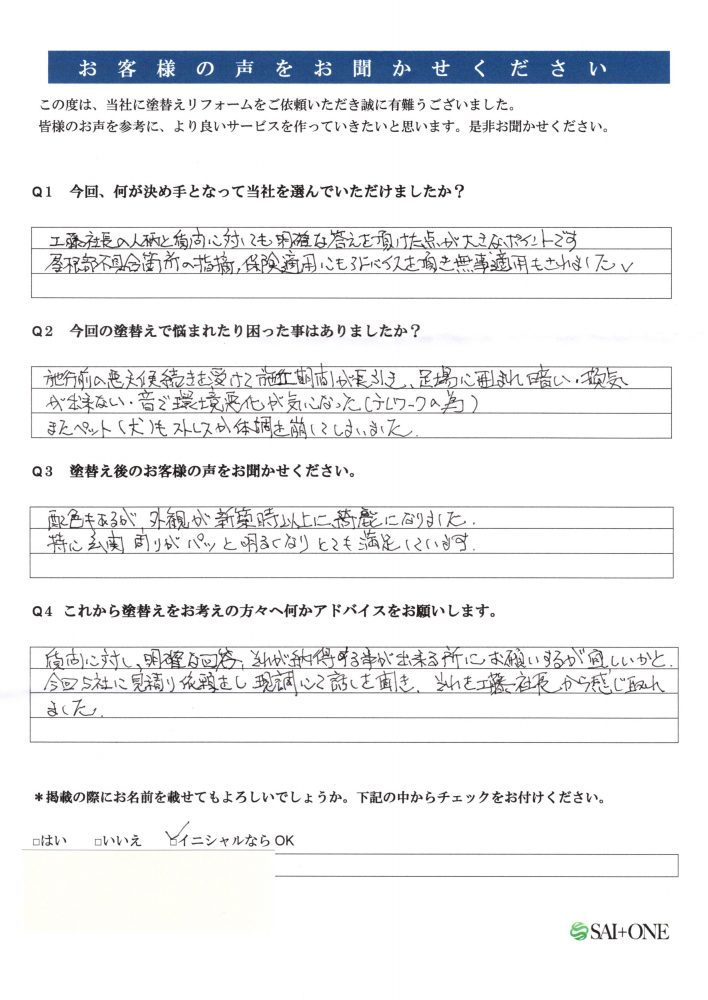 お客様の声をお聞かせください
この度は、当社に塗替えリフォームをご依頼いただき誠に有難うございました。
皆様のお声を参考に、より良いサービスを作っていきたいと思います。是非お聞かせください。
Q1　今回、何が決め手となって当社を選んでいただけましたか？
工藤社長の人柄と質問に対しても明確な答えを頂けた点が大きなポイントです
屋根部不具合箇所の指摘，保険適用にもアドバイスを頂き無事適用もされました
Q2　今回の塗替えで悩まれたり困った事はありましたか？
施行前の悪天候続きを受けて施工期間が長引き、足場に囲まれ暗い・換気
が出来ない・音で環境悪化が気になった(テレワークの為)
またペット(犬)もストレスか体調を崩してしまいました．
Q3　塗替え後のお客様の声をお聞かせください。
配色もあるが、外観が新築時以上に、綺麗になりました．
特に玄関周りがパッと明るくなりとても満足しています．
Q4 これから塗替えをお考えの方々へ何かアドバイスをお願いします。
質問に対し、明確な回答、それが納得する事が出来る所にお願いするが宜しいかと．
今回5社に見積り依頼をし現調にて話しを聞き、それを工藤社長から感じ取れ
ました．
＊掲載の際にお名前を載せてもよろしいでしょうか。下記の中からチェックをお付けください。
□はい　□いいえ　☑イニシャルなら OK
SAI+ONE